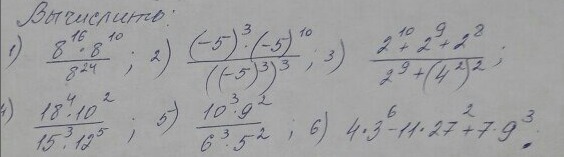 Вычислить:
1) (8¹⁶·8¹⁰)/8²⁴ ; 2) ((-5)³·(-5)¹⁰)/((-5)³)³ ; 3) (2¹⁰+2⁹+2⁸)/(2⁹+(4²)²) ;
4) (18⁴·10²)/(15³·12⁵) ; 5) (10³·9²)/(6³·5²) ; 6) 4·3⁶-11·27²+7·9³.